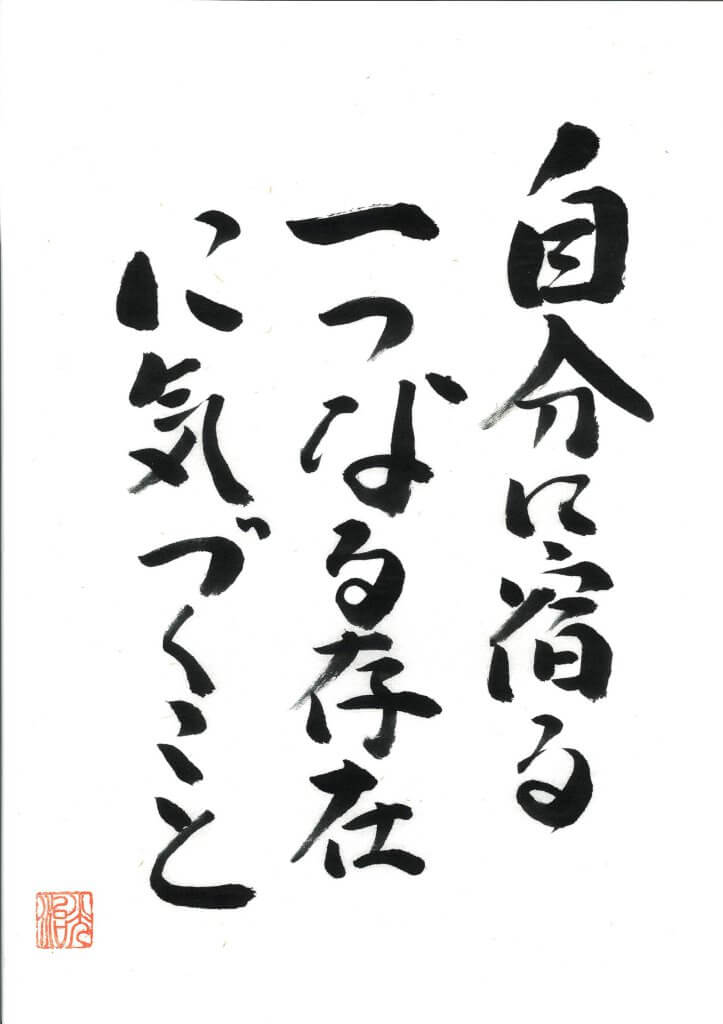 自分に宿る
一つなる存在
に気づくこと